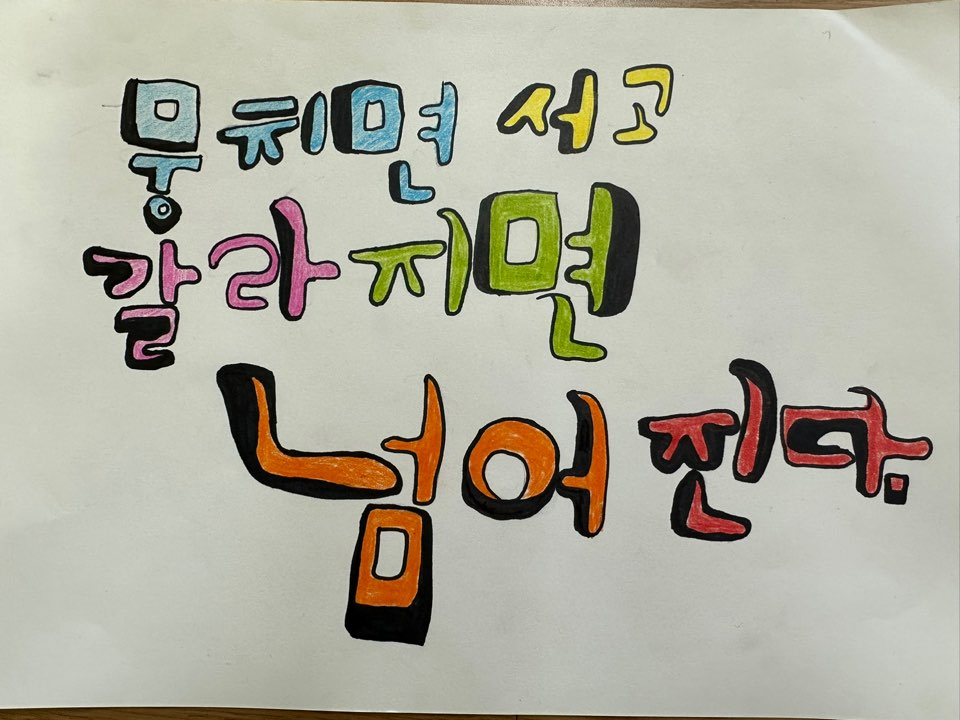 뭉치면 서고
갈라지면
넘어진다.